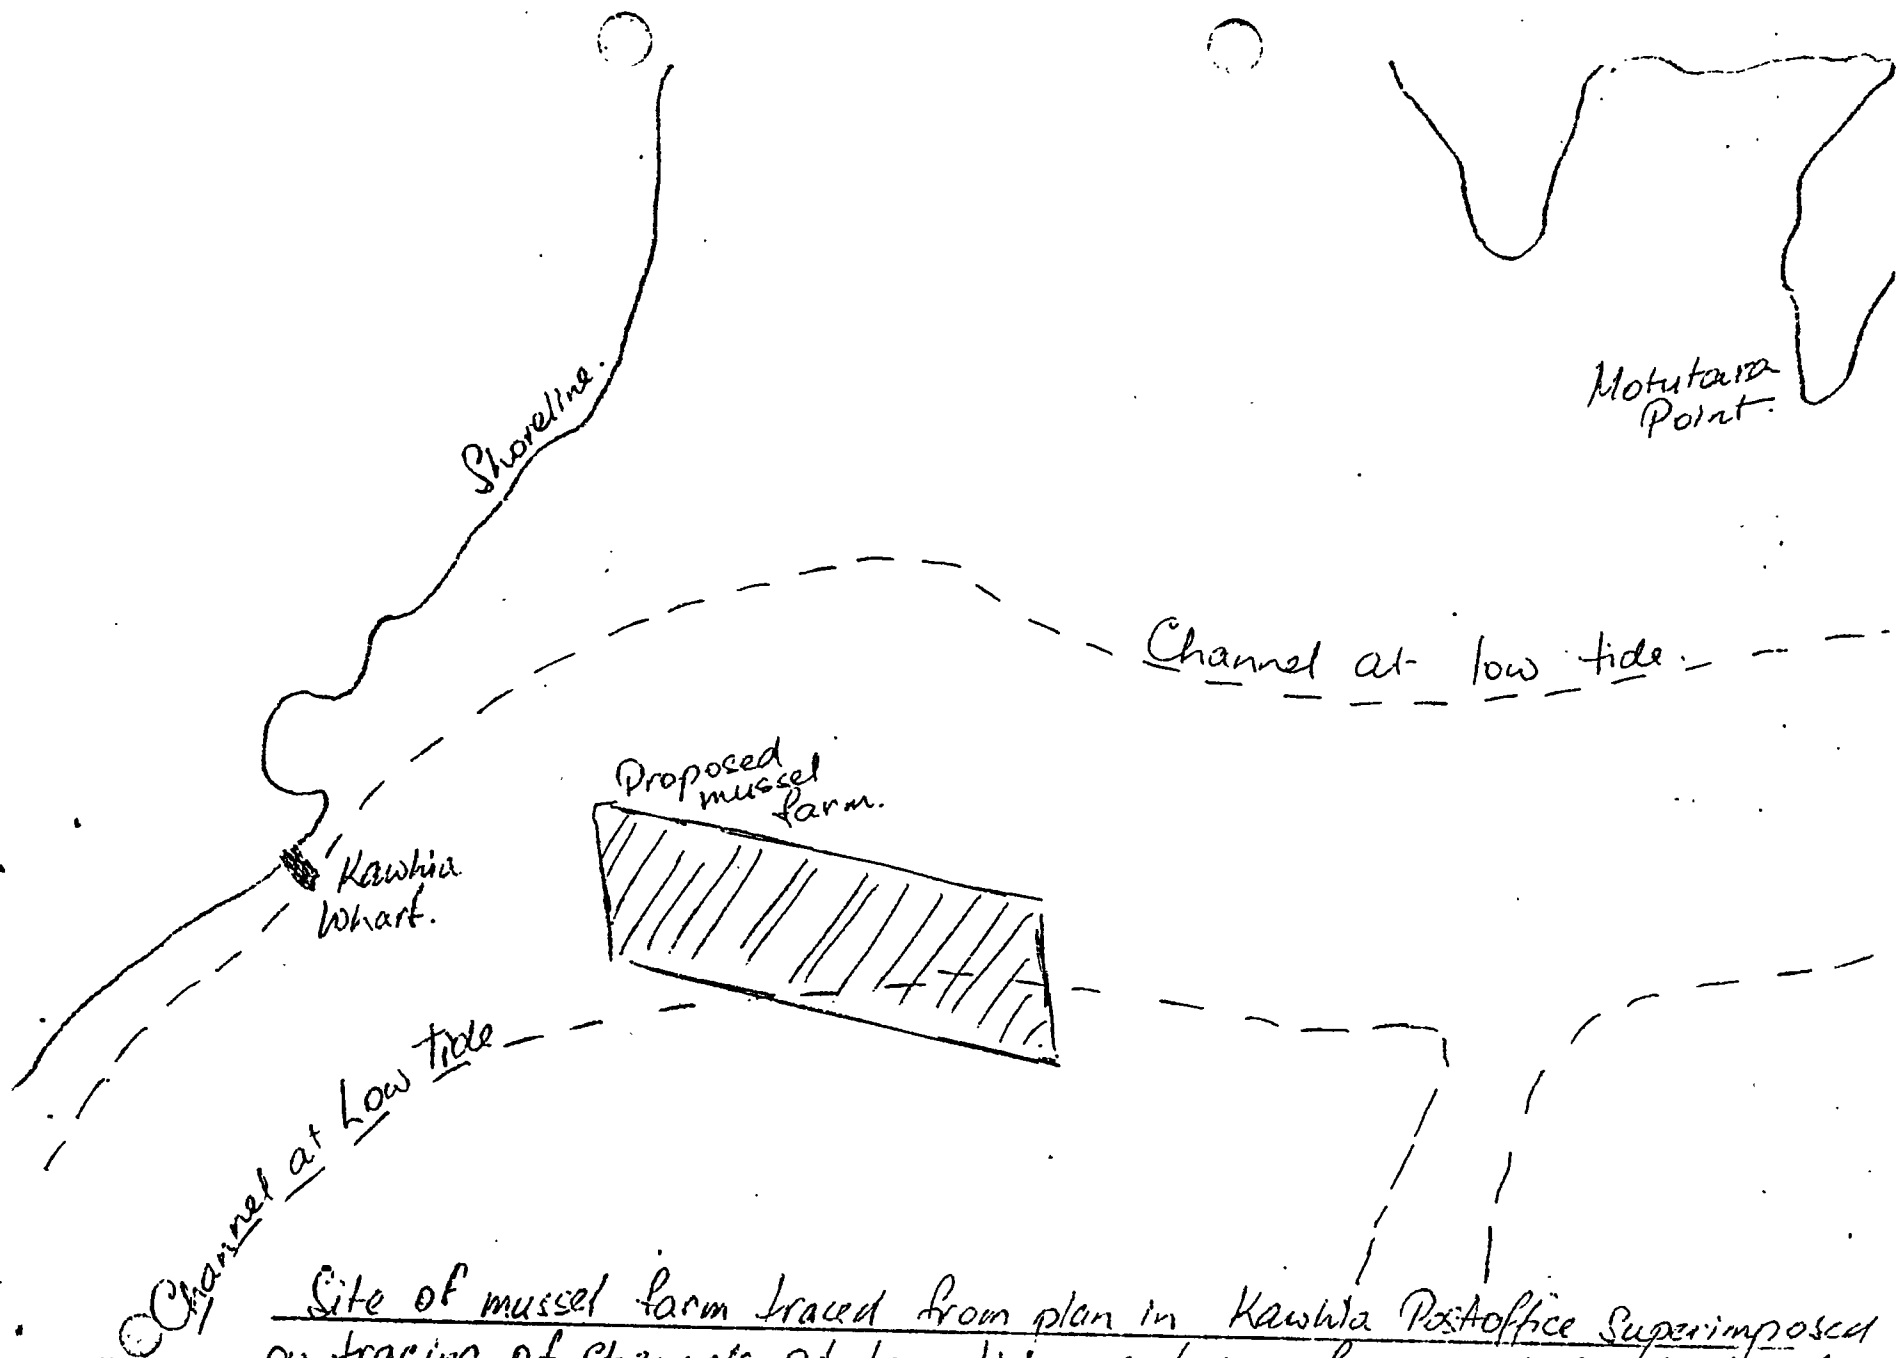 Shoreline.
Motutara
Point.
Channel at low tide.
Proposed
mussel
farm.
Kawhia
Wharf.
Channel at Low Tide
Site of mussel farm traced from plan in Kawhia Postoffice Superimposed
on tracing of channels at low tide